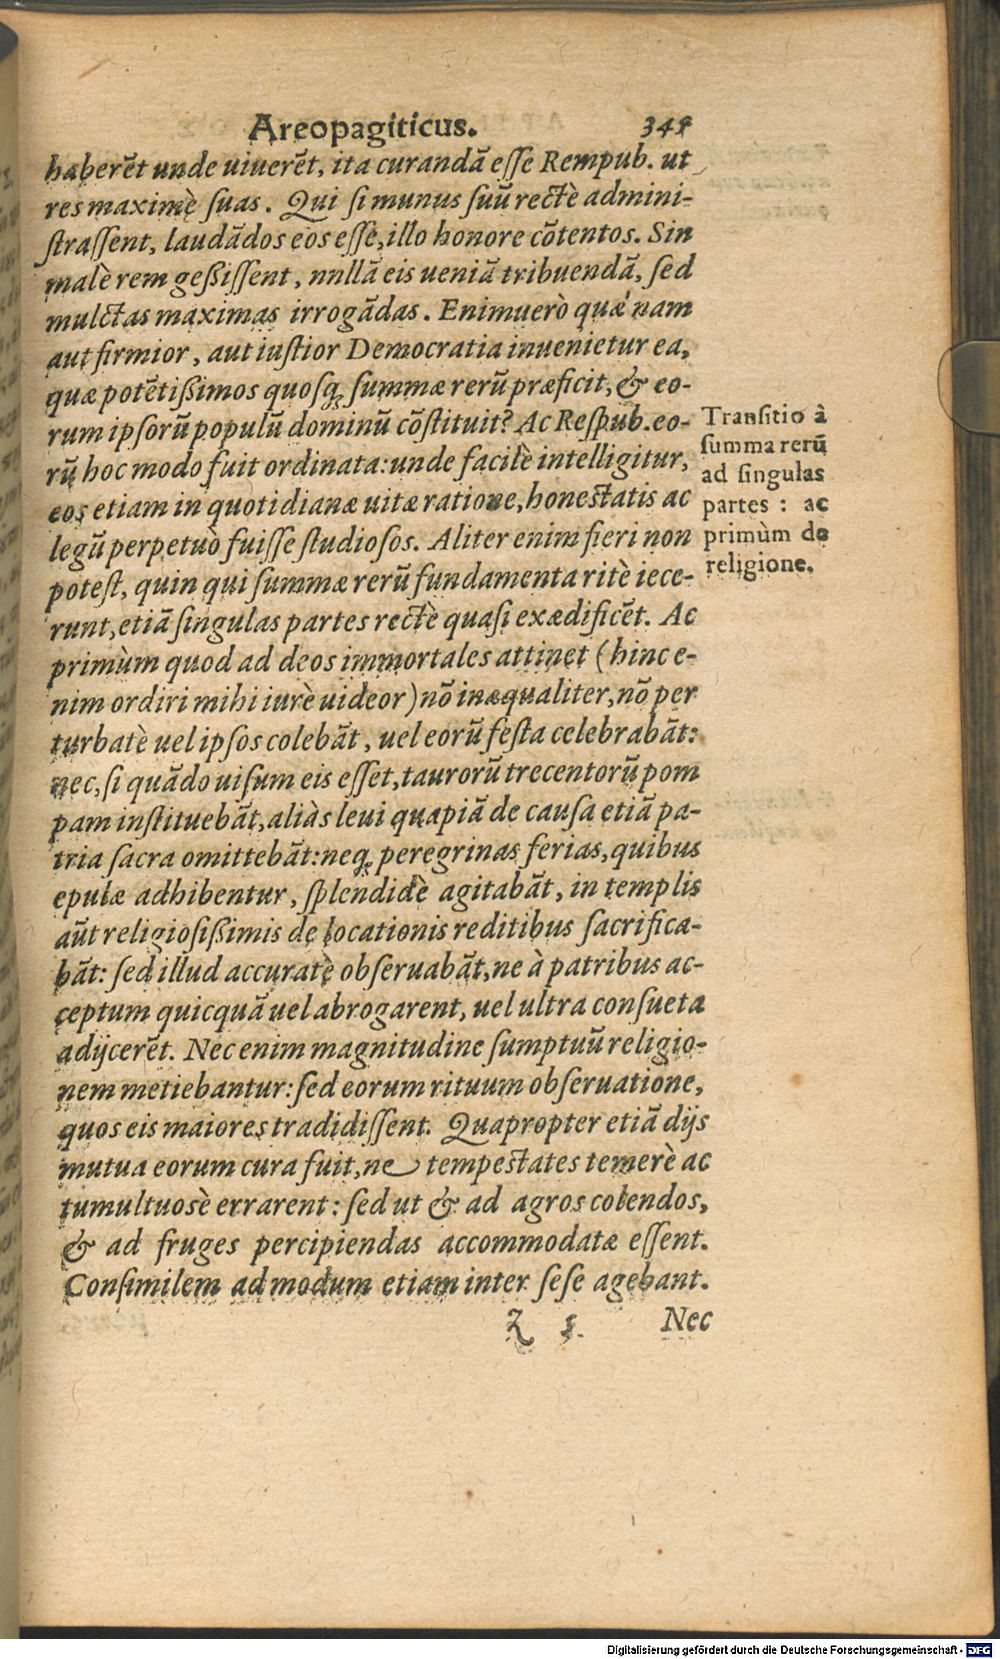 Areopagiticus. 341
haberēt unde uiuerēt, ita curandā eſſe Rempub. ut
res maximè ſuas. Qui ſi munus ſuū rectè admini-
ſtraſſent, laudādos eos eſſe, illo honore cōtentos. Sin
malè rem geßiſſent, nnllā eis ueniā tribuendā, ſed
mulctas maximas irrogādas. Enimuerò quæ´nam
aut firmior, aut iuſtior Democratia inuenietur ea,
quæ potētißimos quoſq; ſummæ rerū præficit, & eo-
rum ipſorū populū dominū cōſtituit? Ac Reſpub. eo-
rū hoc modo fuit ordinata: unde facilè intelligitur,
eos etiam in quotidianæ uitæ ratione, honeſtatis ac
legū perpetuò fuiſſe ſtudioſos. Aliter enim fieri non
poteſt, quin qui ſummæ rerū fundamenta ritè iece-
runt, etiā ſingulas partes rectè quaſi exædificēt. Ac
primùm quod ad deos immortales attinet (hinc e-
nim ordiri mihi iurè uideor) nō inæqualiter, nō per
turbatè uel ipſos colebāt, uel eorū feſta celebrabāt:
nec, ſi quādo uiſum eis eſſet, taurorū trecentorū pom
pam inſtituebāt, aliàs leui quapiā de cauſa etiā pa-
tria ſacra omittebāt: neq; peregrinas ferias, quibus
epulæ adhibentur, ſplendidè agitabāt, in templis
aūt religioſißimis de locationis reditibus ſacrifica-
bāt: ſed illud accuratè obſeruabāt, ne à patribus ac-
ceptum quicquā uel abrogarent, uel ultra conſueta
adijcerēt. Nec enim magnitudine ſumptuū religio-
nem metiebantur: ſed eorum rituum obſeruatione,
quos eis maiores tradidiſſent. Quapropter etiā dijs
mutua eorum cura fuit, ne tempeſtates temerè ac
tumultuosè errarent: ſed ut & ad agros colendos,
& ad fruges percipiendas accommodatæ eſſent.
Conſimilem ad modum etiam inter ſeſe agebant.
Z Nec
Tranſitio à
ſumma rerū
ad ſingulas
partes: ac
primùm de
religione.
Digitalisierung gefördert durch die Deutsche Forschungsgemeinschaft - DFG